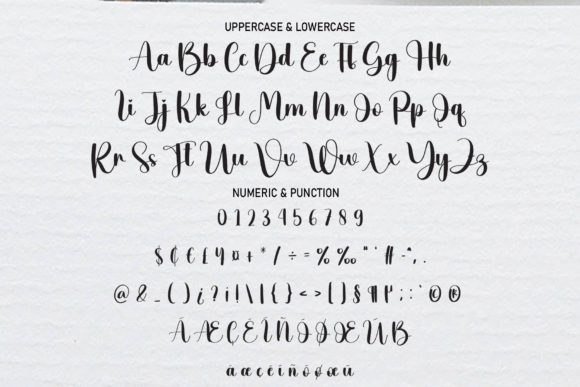 UPPERCASE & LOWERCASE
Aa Bb Cc Dd Ee Ff Gg Hh
Ii Jj Kk Ll Mm Nn Oo Pp Qq
Rr Ss Tt Uu Vv Ww Xx Yy Zz
NUMERIC & PUNCTION
0 1 2 3 4 5 6 7 8 9
$ ¢ € £ ¥ ¤ + * / ÷ = % ‰ " ' # - ^ , .
@ & _ ( ) ¿ ? i ! \ | { } < > [ ] § ¶ µ ; : ` © ®
Á Æ Ç É Í Ñ Ó Ø Œ Ú ß
á æ ç é í ñ ó ø œ ú